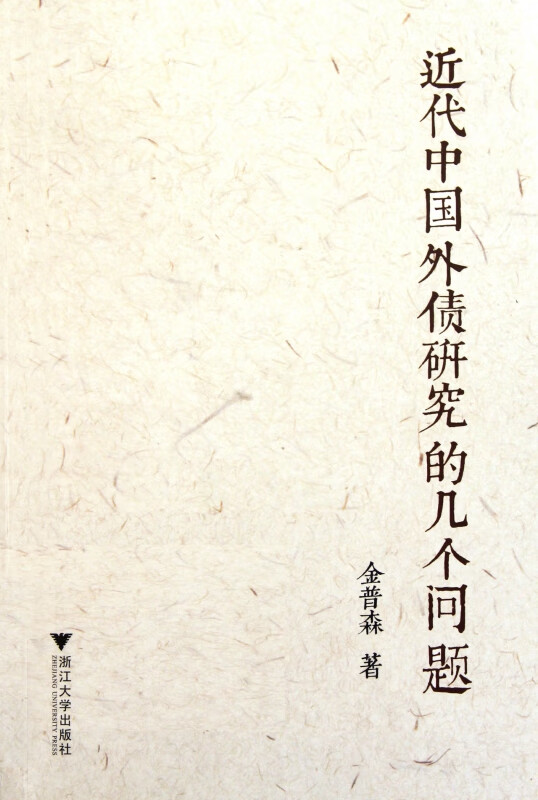 近代中国外债研究的几个问题
金普森 著
浙江大学出版社
ZHEJIANG UNIVERSITY PRESS